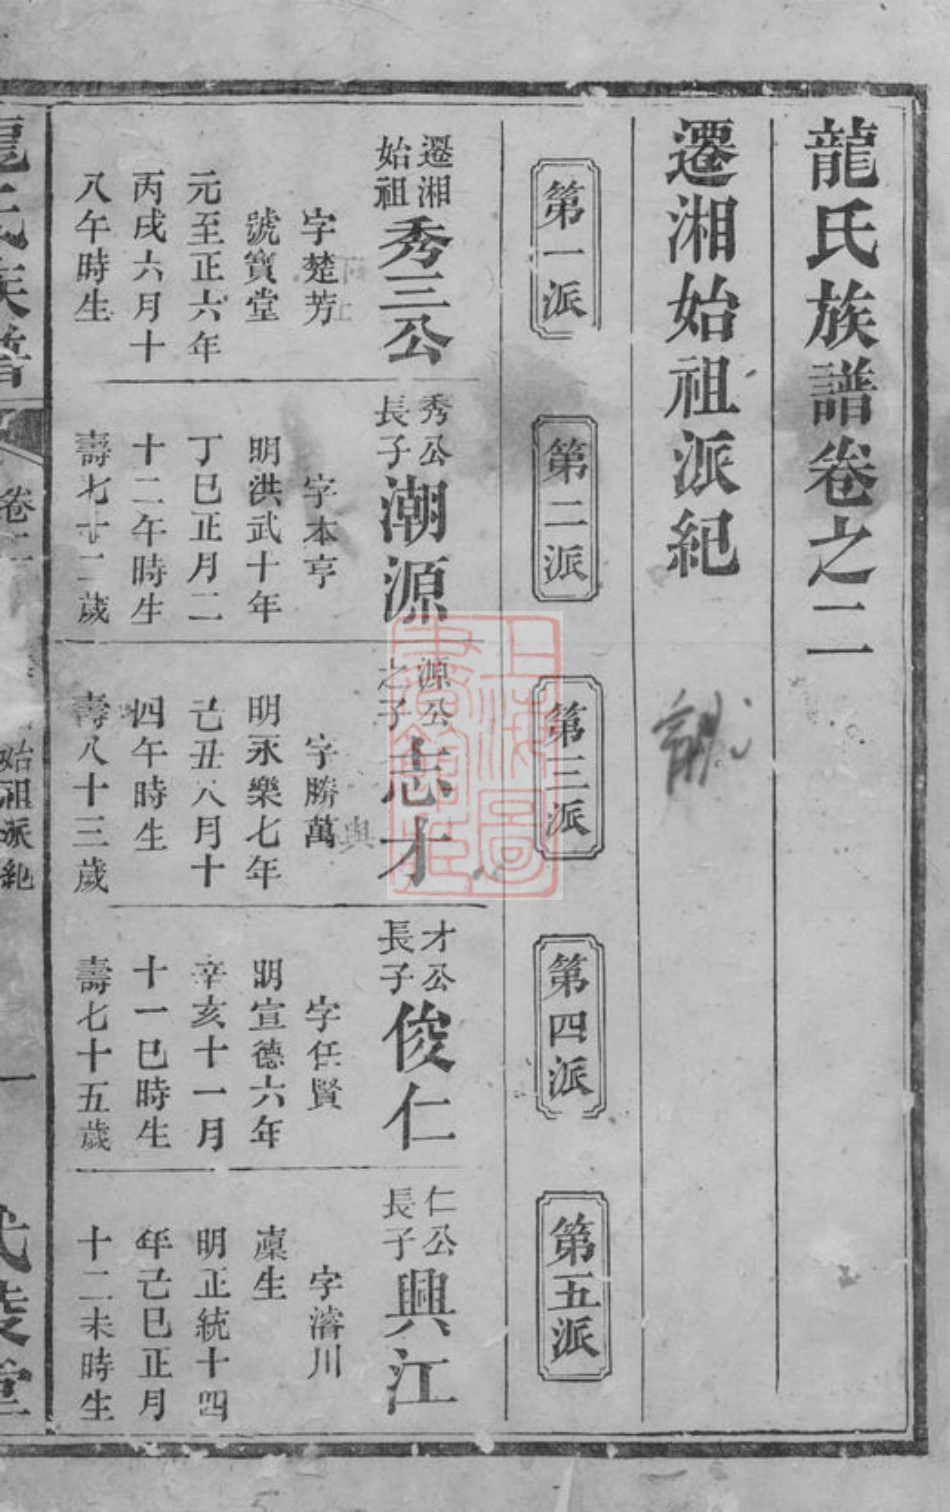 龍氏族譜卷之二
遷湘始祖派紀
第一派
第二派
第三派
第四派
第五派
遷湘
始祖
秀三公
字楚芳
號寶堂
元至正六年
丙戌六月十
八午時生
秀公
長子
潮源
字本亨
明洪武十年
丁巳正月二
十二午時生
壽七十二歲
源公
之子
志才
字勝萬
明永樂七年
己丑八月十
四午時生
壽八十三歲
才公
長子
俊仁
字任賢
明宣德六年
辛亥十一月
十一巳時生
壽七十五歲
仁公
長子
興江
字濬川
廩生
明正統十四
年己巳正月
十二未時生
龍氏族譜
卷二
始祖派紀
一
武陵堂
上海圖
書館藏